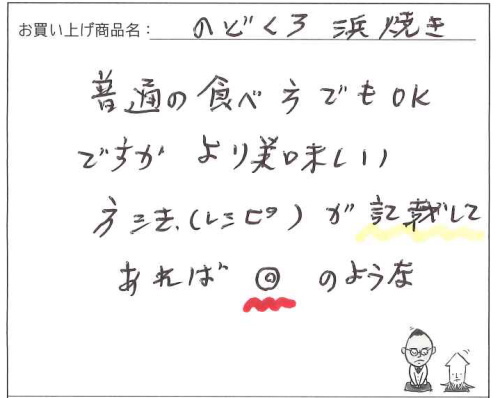 お買い上げ商品名: のどくろ 浜焼き
普通の食べ方でもOK
ですが より美味しい
方法、(レシピ)が記載して
あれば ◎ のような